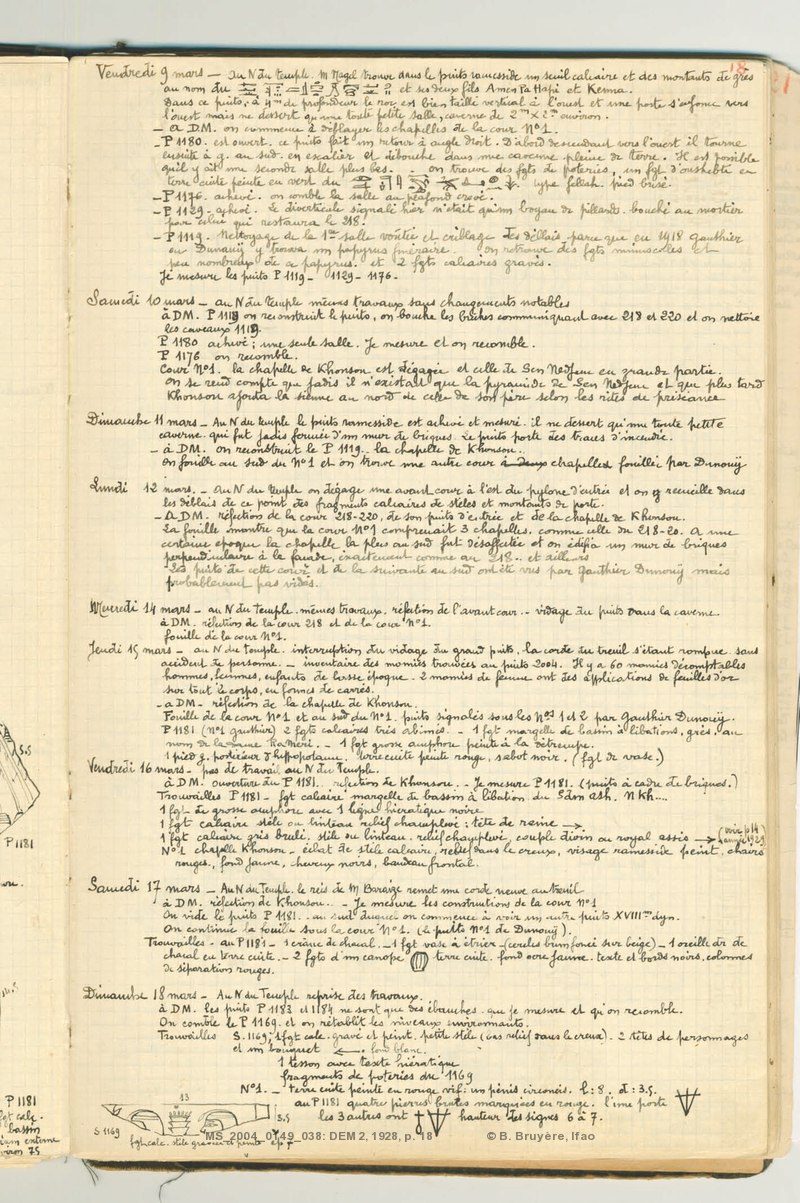 18
Vendredi 9 mars — au N du temple. M Nagel trouve dans le puits ramesside un seuil calcaire et des montants de grès
au nom du et ses deux fils Amen Pa Hapi et Kenna.
Dans ce puits, à 4m de profondeur le roc est bien taillé vertical à l'ouest et une porte s'enfonce vers
l'ouest mais ne dessert qu'une toute petite salle, caverne de 2m × 2m environ.
— a DM. on commence à déblayer les chapelles de la cour N°1.
— P1180. est ouvert. ce puits fait un retour à angle droit. D'abord descendant vers l'ouest il tourne
ensuite à g. au sud. en escalier et débouche dans une caverne pleine de terre. Il est possible
qu'il y ait une seconde salle plus bas. - on trouve des fgts de poteries, un fgt d'oushebti en
terre cuite peinte en vert du type fellah. pied brisé.
— P1176. achevé. on comble la salle au plafond crevé.
— P1129. achevé. Le diverticule signalé hier n'était qu'un boyau de pillards. bouché au mortier
par celui qui restaura le 218.
— P1119. Nettoyage de la 1ère salle voûtée et criblage des déblais, parce que en 1918 Gauthier
ou Dunouÿ y trouva un papyrus funéraire. on retrouve des fgts minuscules et
peu nombreux de ce papyrus. et 2 fgts calcaires gravés.
Je mesure les puits P1119 - 1129 - 1176 -
Samedi 10 mars — au N du Temple mêmes travaux sans changements notables
à DM. P1119 on reconstruit le puits, on bouche les brèches communiquant avec 218 et 220 et on nettoie
les caveaux 1119.
P1180 achevé ; une seule salle. Je mesure et on recomble.
P1176 on recomble.
Cour N°1. la chapelle de Khonsou est dégagée et celle de Sen Nedjem en grande partie.
On se rend compte que jadis il n'existait que la pyramide de Sen Nedjem et que plus tard
Khonsou ajouta la sienne au nord de celle de son père selon les rites de préséance
Dimanche 11 mars — Au N du temple le puits ramesside est achevé et mesuré. il ne dessert qu'une toute petite
caverne. qui fut jadis fermée d'un mur de briques. Le puits porte des traces d'incendie.
— à DM. on reconstruit le P1119. la chapelle de Khonsou.
On fouille au sud du N°1 et on trouve une autre cour à deux chapelles fouillée par Dunouÿ
Lundi 12 mars. — Au N du Temple on dégage une avant cour à l'est du pylone d'entrée et on recueille dans
les déblais de ce point des fragments calcaires de stèles et montants de porte.
— a DM. réfection de la cour 218-220, de son puits d'entrée et de la chapelle de Khonsou.
La fouille montre que la cour N°1 comprenait 3 chapelles, comme celle du 218-20. A une
certaine époque la chapelle la plus au sud fut désaffectée et on édifia un mur de briques
perpendiculaire à la façade, exactement comme au 218. et ailleurs
Les puits de cette cour et de la suivante au sud ont été vus par Gauthier Dunouÿ mais
probablement pas vidés.
Mercredi 14 mars — au N du Temple. mêmes travaux. réfection de l'avant cour. - vidage du puits dans la caverne.
à DM. réfection de la cour 218 et de la cour N°1.
fouille de la cour N°1.
Jeudi 15 mars — au N du temple. interruption du vidage du grand puits, la corde du treuil s'étant rompue sans
accident de personne. — inventaire des momies trouvées au puits 2004. Il y a 60 momies décomptables
hommes, femmes, enfants de basse époque. 2 momies de femme ont des applications de feuilles d'or
sur tout le corps, en formes de carrés.
— a DM - réfection de la chapelle de Khonsou.
Fouille de la cour N°1 et au sud du N°1. puits signalés sous les Nos 1 et 2 par Gauthier Dunouÿ.
P1181 (N°1 gauthier) 2 fgts calcaires très abimés. - 1 fgt margelle de bassin à libations, grès, au
nom de la dame — 1 fgt grosse amphore peinte à la détrempe.
1 pied g. postérieur d'hippopotame. terre cuite peinte rouge, sabot noir. (fgt de vase.)
Vendredi 16 mars — pas de travail au N du Temple.
à DM. ouverture du P1181. réfection de Khonsou. - Je mesure P1181. (puits à cadre de briques.)
Trouvailles P1181 - fgt calcaire margelle de bassin à libation du Sdm ash. N Kh....
1 fgt de grosse amphore avec 1 ligne hiératique noire
1 fgt calcaire stèle ou linteau relief champlevé : tête de reine →
1 fgt calcaire gris brulé, stèle ou linteau. relief champlevé, couple divin ou royal assis → (voir p 14 année 1929)
N°1 chapelle Khonsou - éclat de stèle calcaire, relief dans le creux, visage ramesside peint. chairs
rouges, fond jaune, cheveux noirs, bandeau frontal.
Samedi 17 mars — Au N du Temple. le reis de M Baraize remet une corde neuve au treuil
à DM. réfection de Khonsou. - Je mesure les constructions de la cour N°1
On vide le puits P1181. au sud duquel on commence à voir un autre puits XVIIIème dyn.
On continue la fouille sous la cour N°1. (le puits N°1 de Dunouÿ).
Trouvailles - au P1181 - 1 crâne de chacal. - 1 fgt vase à étrier (cercles brun foncé sur beige) - 1 oreille dr. de
chacal en terre cuite. - 2 fgts d'un canope terre cuite. fond ocre jaune. texte et bords noirs, colonnes
de séparation rouges.
Dimanche 18 mars - Au N du Temple reprise des travaux.
à DM. les puits P1183 et 1184 ne sont que des ébauches. que je mesure et qu'on recomble.
On comble le P1169. et on rétablit les niveaux environnants.
Trouvailles S.1169, 1 fgt calc. gravé et peint, petite stèle (bas relief dans le creux). 2 têtes de personnages
et un bouquet ← fond blanc.
1 tesson avec texte hiératique
fragments de poteries du 1169
N°1. - terre cuite peinte en rouge vif : un pénis circoncis. l : 8. d : 3.5.
au P1181 quatre pierres brutes marquées en rouge. l'une porte
les 3 autres ont hauteur des signes 6 à 7.
13
3.5
S 1169
fgt calc. stèle gravée et peinte
5.5
P 1181
P 1181
fgt calc.
bassin
MS_2004_0149_038: DEM 2, 1928, p. 18
© B. Bruyère, Ifao